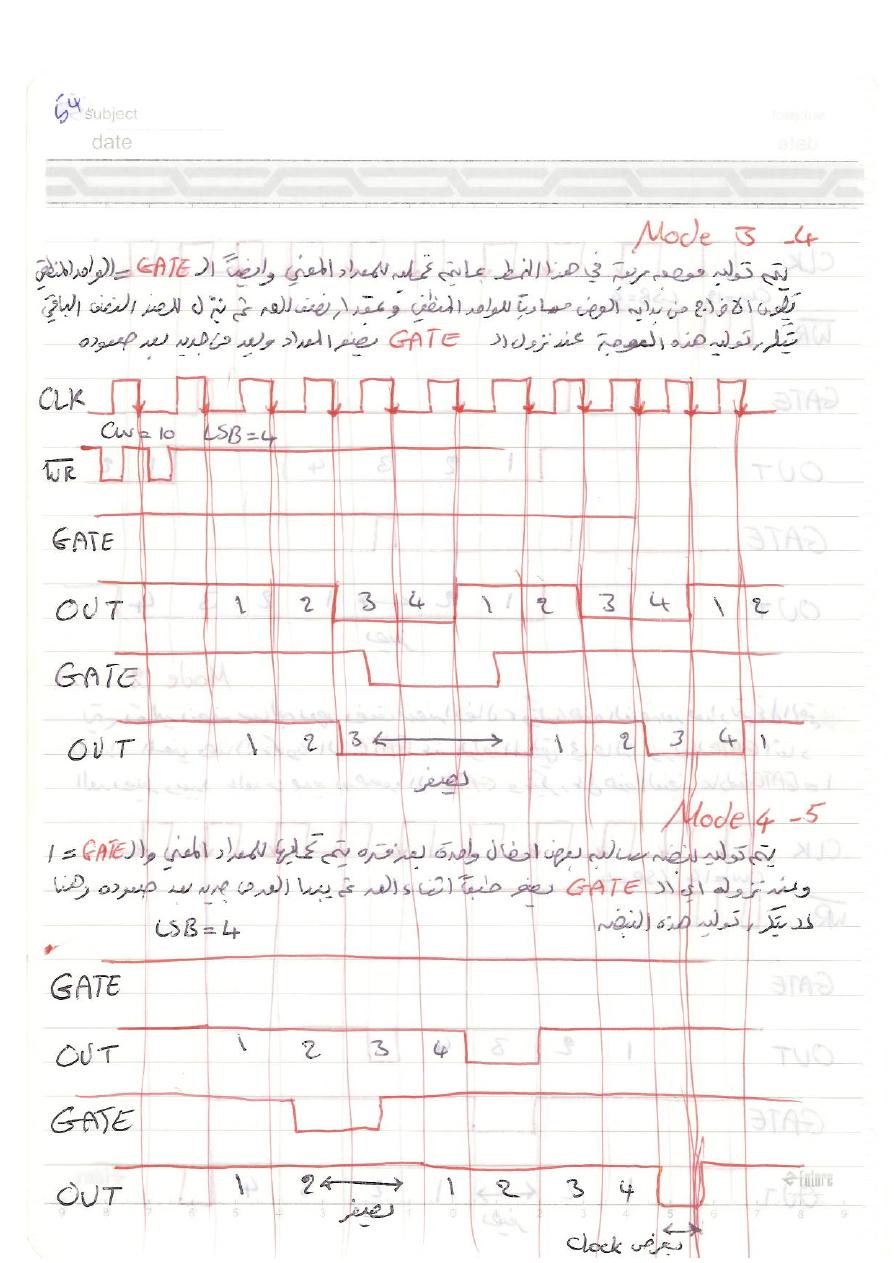 54
subject
date
Mode 3 -4
يتم توليد موجة مربعة في هذا النمط بما يتم تحميله للعداد المعني وأيضاً الـ GATE = الواحد المنطقي
يكون الإخراج من بداية العرض مساوياً للواحد المنطقي وبمقدار نصف العد ثم ينزل للصفر النصف الباقي
يتكرر توليد هذه الموجة عند نزول الـ GATE يصفر العداد ويعد من جديد بعد صعوده
CLK
CW=10 LSB=4
WR
GATE
OUT 1 2 3 4 1 2 3 4 1 2
GATE
OUT 1 2 3 1 2 3 4 1
يصفر
Mode 4 -5
يتم توليد نبضة سالبة بعرض واحدة بعد فترة يتم تحميلها للعداد المعني والـ GATE = 1
وعند نزوله أي الـ GATE يصفر أثناء العد ثم يبدأ العد من جديد بعد صعوده وهنا
لا يتكرر توليد هذه النبضة
LSB=4
GATE
OUT 1 2 3 4
GATE
OUT 1 2 1 2 3 4
يصفر
بعرض Clock
Future